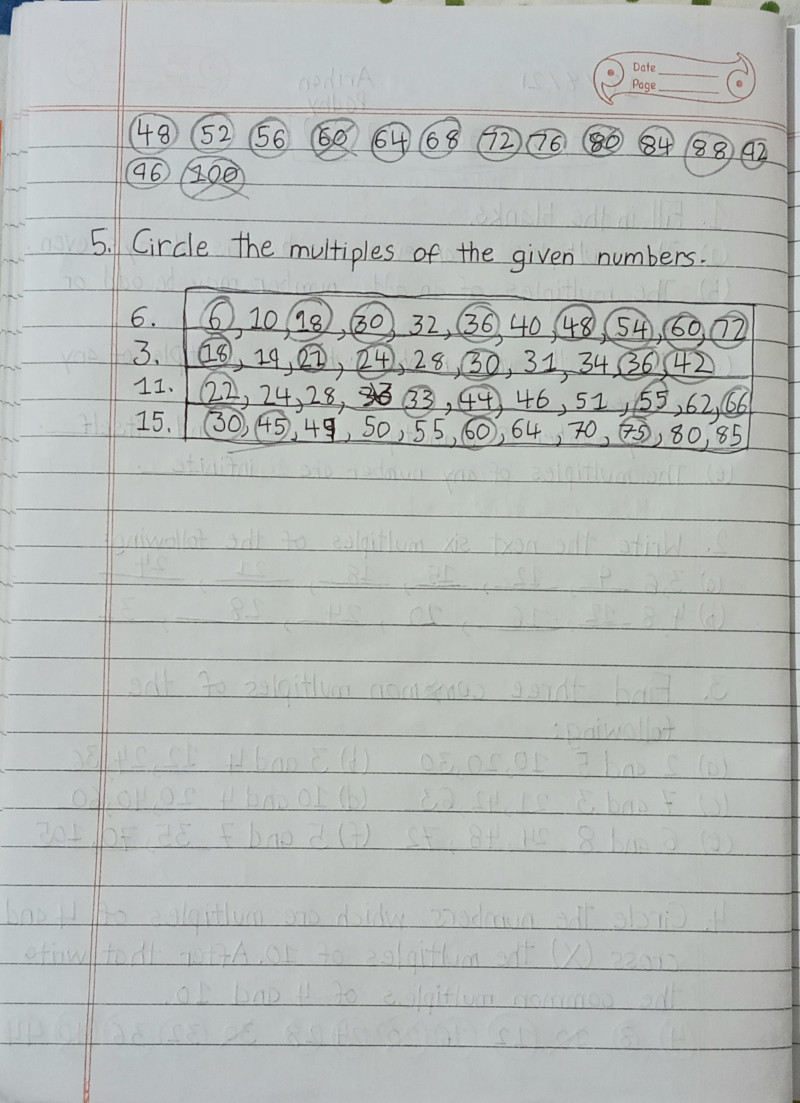 Date
Page
48 52 56 60 64 68 72 76 80 84 88 92
96 100
5. Circle the multiples of the given numbers.
6. 6, 10, 18, 30, 32, 36, 40, 48, 54, 60, 72
3. 18, 19, 21, 24, 28, 30, 31, 34, 36, 42
11. 22, 24, 28, 33, 44, 46, 51, 55, 62, 66
15. 30, 45, 49, 50, 55, 60, 64, 70, 75, 80, 85